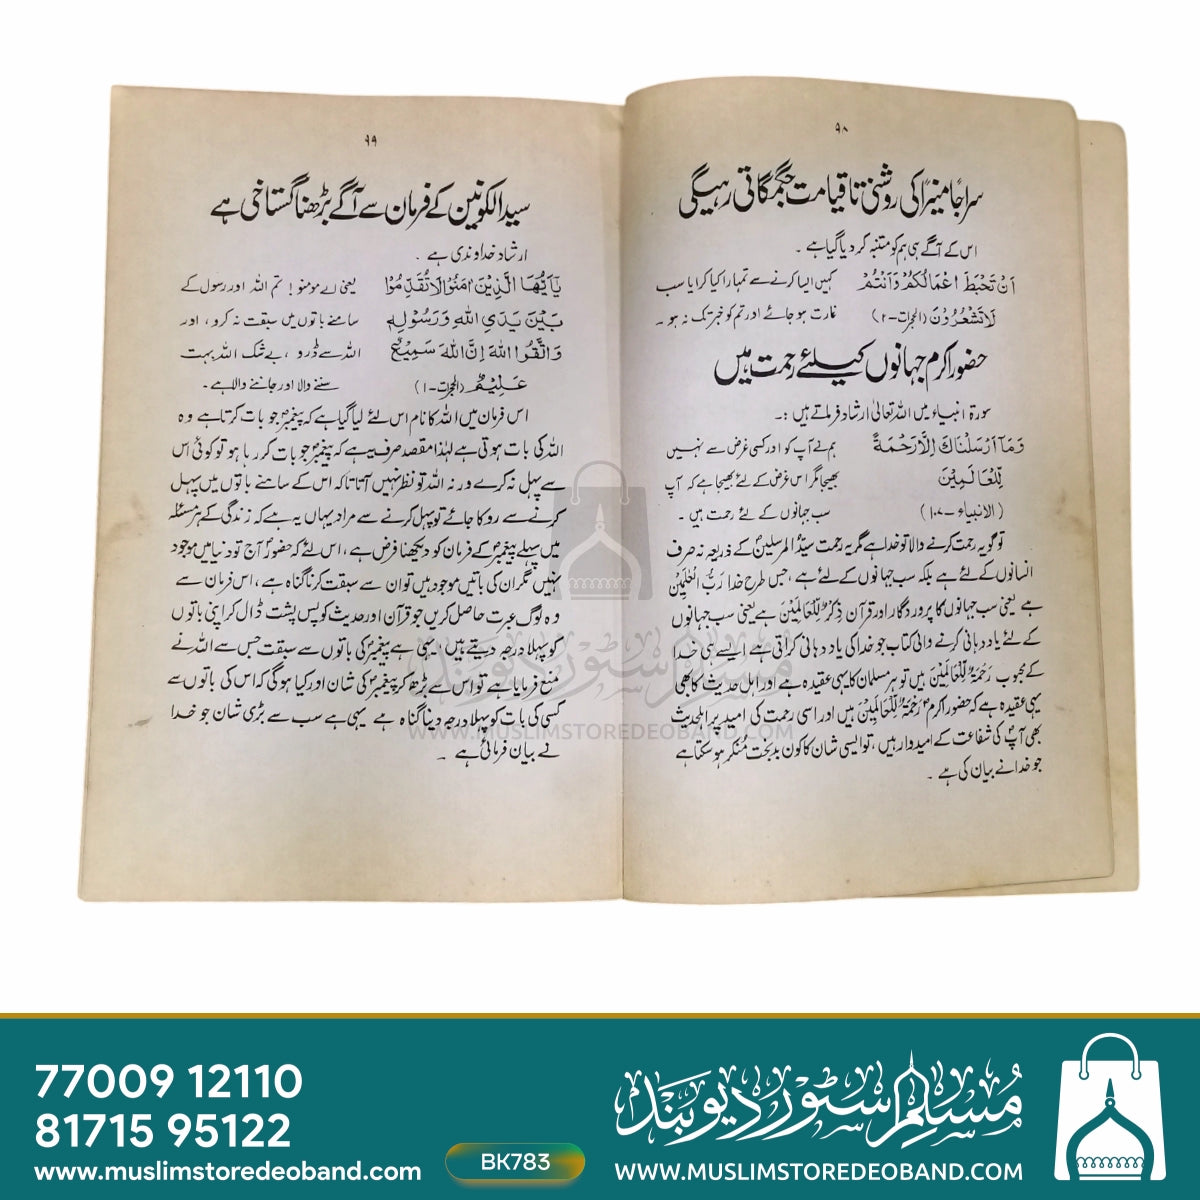 ۹۸
سراجاً منیراً کی روشنی تا قیامت جگمگاتی رہیگی
اس کے آگے ہی ہم کو متنبہ کر دیا گیا ہے ۔
اَنْ تَحْبَطَ اَعْمَالُكُمْ وَاَنْتُمْ کہیں ایسا کرنے سے تمہارا کیا کرایا سب
لَا تَشْعُرُوْنَ (الحجرات-۲) غارت ہو جائے اور تم کو خبر تک نہ ہو ۔
حضور اکرم جہانوں کیلئے رحمت ہیں
سورۃ انبیاء میں اللہ تعالیٰ ارشاد فرماتے ہیں :۔
وَمَا اَرْسَلْنَاكَ اِلَّا رَحْمَةً ہم نے آپ کو اور کسی غرض سے نہیں
لِّلْعَالَمِيْنَ بھیجا مگر اس غرض کے لئے بھیجا ہے کہ آپ
(الانبیاء - ۱۰۷) سب جہانوں کے لئے رحمت ہیں ۔
تو گو یہ رحمت کرنے والا تو خدا ہے مگر یہ رحمت سیدُ المرسلینؐ کے ذریعہ نہ صرف
انسانوں کے لئے ہے بلکہ سب جہانوں کے لئے ہے ، جس طرح خدا رَبُّ الْعٰلَمِیْنَ
ہے یعنی سب جہانوں کا پروردگار اور قرآن ذِکْرٌ لِّلْعَالَمِیْنَ ہے یعنی سب جہانوں
کے لئے یاد دہانی کرنے والی کتاب جو خدا کی یاد دہانی کراتی ہے ایسے ہی خدا
کے محبوب رَحْمَةٌ لِّلْعَالَمِیْنَ ہیں تو ہر مسلمان کا یہی عقیدہ ہے اور اہل حدیث کا بھی
یہی عقیدہ ہے کہ حضور اکرمؐ رَحْمَةٌ لِّلْعَالَمِیْنَ ہیں اور اسی رحمت کی امید پر اہلحدیث
بھی آپؐ کی شفاعت کے امیدوار ہیں ، تو ایسی شان کا کون بدبخت مُنکر ہو سکتا ہے
جو خدا نے بیان کی ہے ۔
۹۹
سید الکونین کے فرمان سے آگے بڑھنا گستاخی ہے
ارشاد خداوندی ہے ۔
يٰاَيُّهَا الَّذِيْنَ اٰمَنُوْا لَا تُقَدِّمُوْا یعنی اے مومنو ! تم اللہ اور رسول کے
بَيْنَ يَدَيِ اللّٰهِ وَرَسُوْلِهٖ سامنے باتوں میں سبقت نہ کرو ، اور
وَاتَّقُوا اللّٰهَ اِنَّ اللّٰهَ سَمِيْعٌ اللہ سے ڈرو ، بے شک اللہ بہت
عَلِيْمٌ (الحجرات-۱) سننے والا اور جاننے والا ہے ۔
اس فرمان میں اللہ کا نام اس لئے لیا گیا ہے کہ پیغمبرؐ جو بات کرتا ہے وہ
اللہ کی بات ہوتی ہے لہٰذا مقصد صرف یہ ہے کہ پیغمبرؐ جو بات کر رہا ہو تو کوئی اس
سے پہل نہ کرے ورنہ اللہ تو نظر نہیں آتا تاکہ اس کے سامنے باتوں میں پہل
کرنے سے روکا جائے تو پہل کرنے سے مراد یہاں یہ ہے کہ زندگی کے ہر مسئلہ
میں پہلے پیغمبرؐ کے فرمان کو دیکھنا فرض ہے ، اس لئے کہ حضورؐ آج تو دنیا میں موجود
نہیں مگر ان کی باتیں موجود ہیں تو ان سے سبقت کرنا گناہ ہے ، اس فرمان سے
وہ لوگ عبرت حاصل کریں جو قرآن اور حدیث کو پس پشت ڈال کر اپنی باتوں
کو پہلا درجہ دیتے ہیں یہی ہے پیغمبرؐ کی باتوں سے سبقت جس سے اللہ نے
منع فرمایا ہے تو اس سے بڑھ کر پیغمبرؐ کی شان اور کیا ہوگی کہ اس کی باتوں سے
کسی کی بات کو پہلا درجہ دینا گناہ ہے یہی ہے سب سے بڑی شان جو خدا
نے بیان فرمائی ہے ۔
مسلم سٹور دیوبند
WWW.MUSLIMSTOREDEOBAND.COM
77009 12110
81715 95122
www.muslimstoredeoband.com
BK783
مسلم سٹور دیوبند
WWW.MUSLIMSTOREDEOBAND.COM